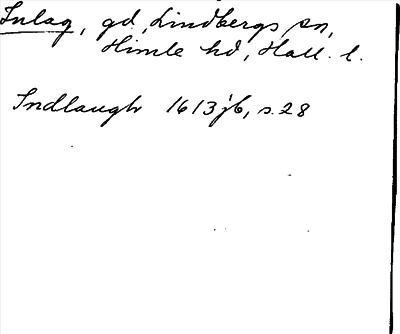 Inlag, gd, Lindbergs sn,
Himle hd, Hall. l.
Indlaugh 1613 jb, s. 28